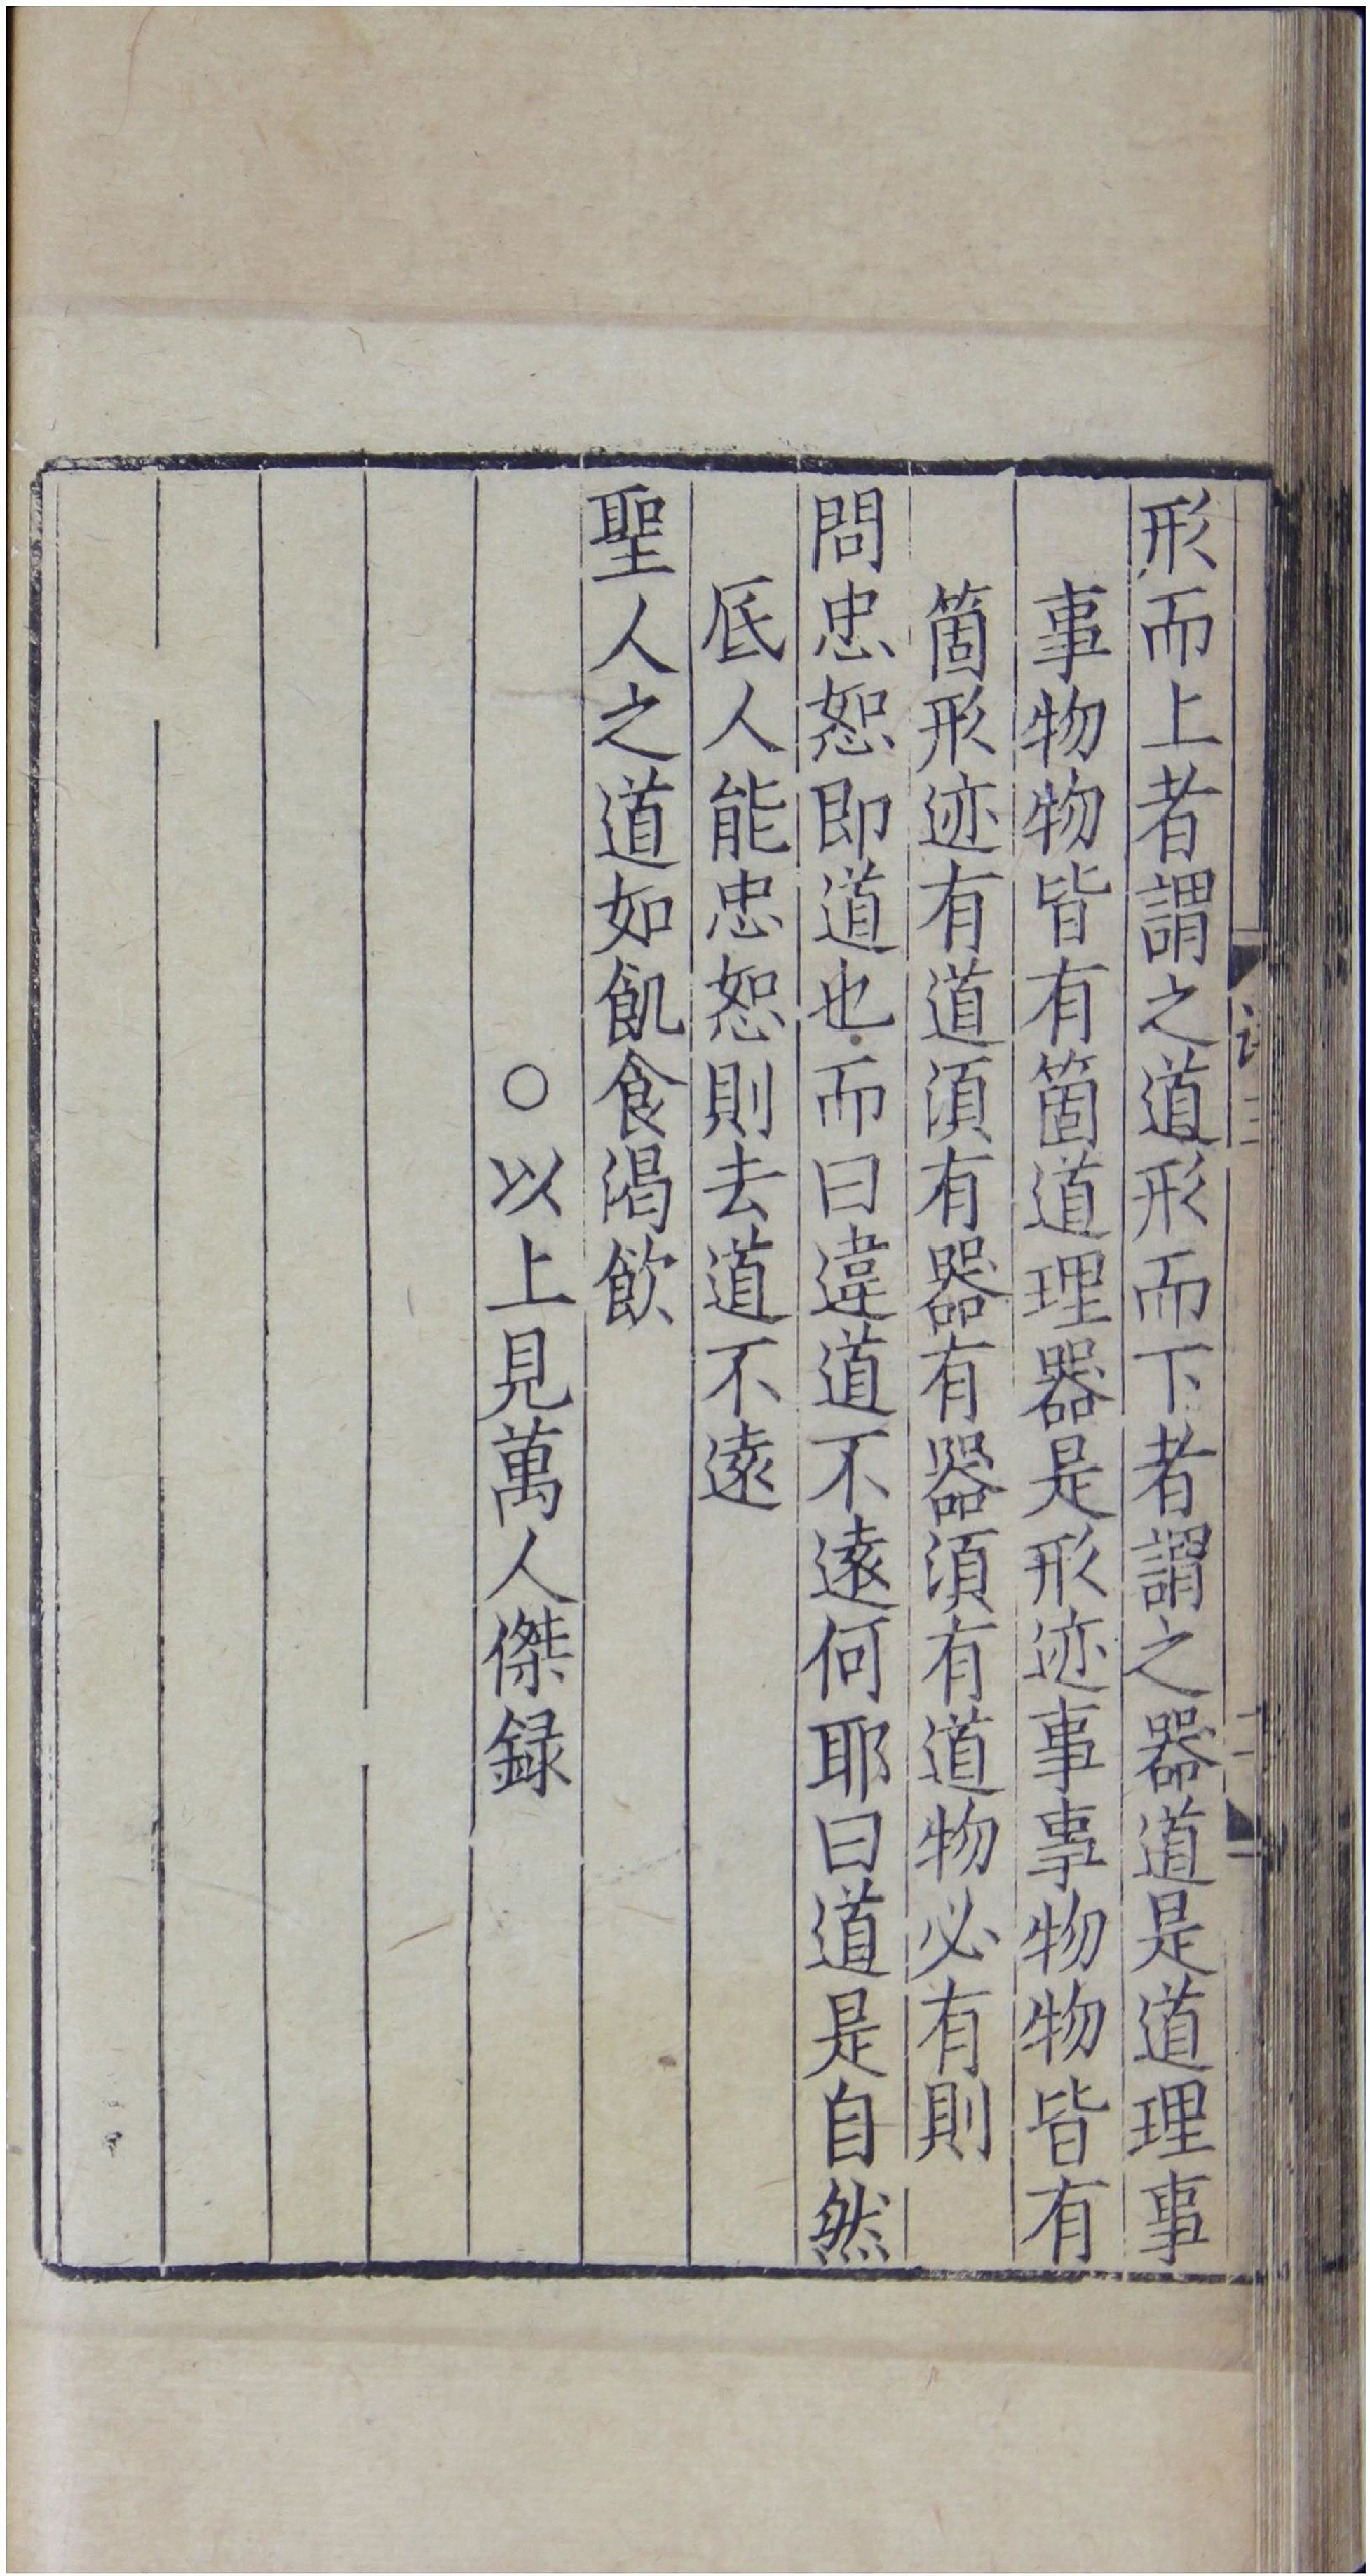 形而上者謂之道形而下者謂之器道是道理事
事物物皆有箇道理器是形迹事事物物皆有
箇形迹有道湏有器有器湏有道物必有則
問忠恕即道也而曰違道不遠何耶曰道是自然
底人能忠恕則去道不遠
聖人之道如飢食渴飲
○以上見萬人傑録